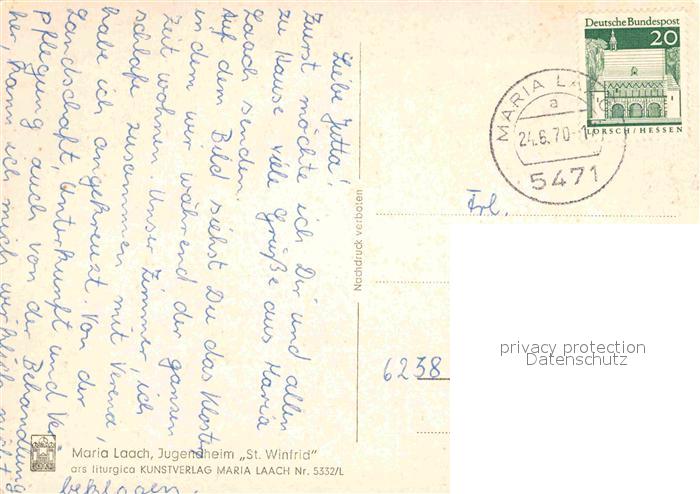 Liebe Jutta!
Zuerst möchte ich Dir und allen
zu Hause viele Grüße aus Maria
Laach senden.
Auf dem Bild siehst Du das Kloster
in dem wir während der ganzen
Zeit wohnen. Unser Zimmer, ich
schlafe zusammen mit Verena,
habe ich angekreuzt. Von der
Landschaft, Unterkunft und Ver-
pflegung auch von der Behandlung
her, kann ich mich wirklich nicht
beklagen.
Maria Laach, Jugendheim „St. Winfrid"
ars liturgica KUNSTVERLAG MARIA LAACH Nr. 5332/L
Nachdruck verboten
Deutsche Bundespost
20
LORSCH/HESSEN
MARIA LAACH
a
24.6.70-1
5471
Frl.
privacy protection
Datenschutz
6238